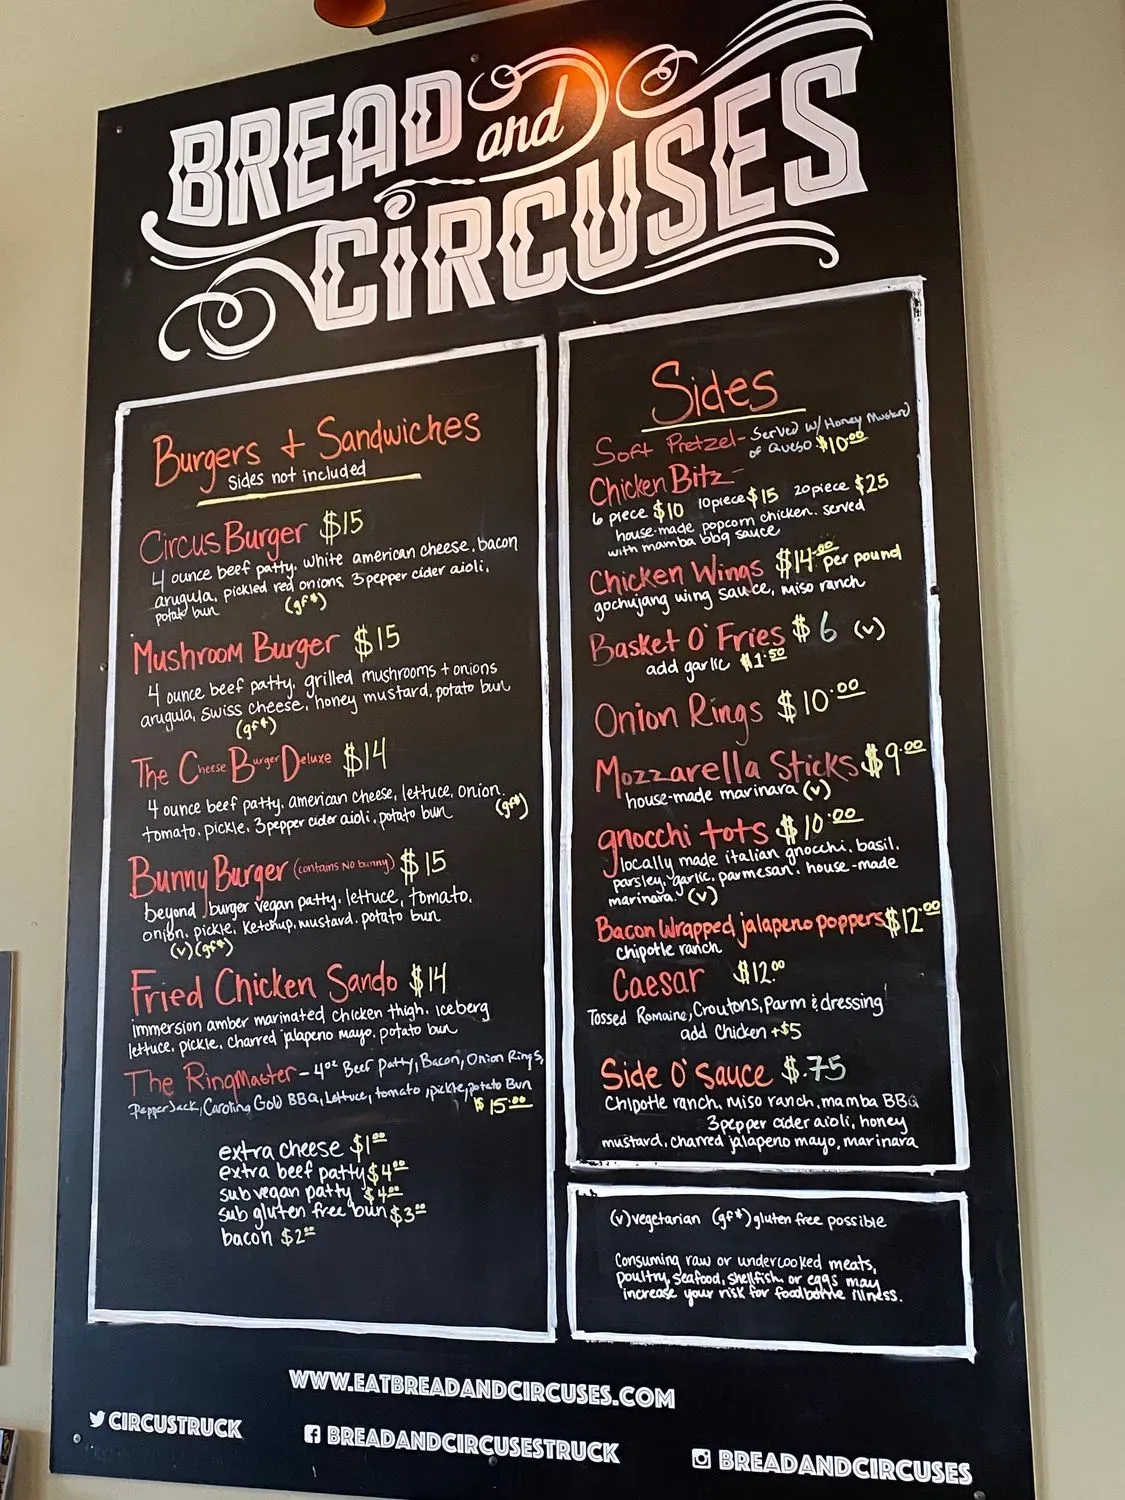 BREAD and
CIRCUSES
Burgers + Sandwiches
Sides not included
Circus Burger $15
4 ounce beef patty, white american cheese, bacon
arugula, pickled red onions, 3 pepper cider aioli,
potato bun (gf*)
Mushroom Burger $15
4 ounce beef patty, grilled mushrooms + onions
arugula, swiss cheese, honey mustard, potato bun
(gf*)
The Cheese Burger Deluxe $14
4 ounce beef patty, american cheese, lettuce, onion,
tomato, pickle, 3 pepper cider aioli, potato bun (gf*)
Bunny Burger (contains NO bunny) $15
beyond burger vegan patty, lettuce, tomato,
onion, pickle, ketchup, mustard, potato bun
(v) (gf*)
Fried Chicken Sando $14
immersion amber marinated chicken thigh, iceberg
lettuce, pickle, charred jalapeno mayo, potato bun
The RingMaster - 4oz Beef Patty, Bacon, Onion Rings,
PepperJack, Carolina Gold BBQ, Lettuce, tomato, pickle, potato Bun
$15.00
extra cheese $1.00
extra beef patty $4.00
sub vegan patty $4.00
sub gluten free bun $3.00
bacon $2.00
Sides
Soft Pretzel - Served w/ Honey Mustard
of Queso $10.00
Chicken Bitz -
6 piece $10 10 piece $15 20 piece $25
house-made popcorn chicken. served
with mamba bbq sauce
Chicken Wings $14.00 per pound
gochujang wing sauce, miso ranch
Basket O' Fries $6 (v)
add garlic $1.50
Onion Rings $10.00
Mozzarella Sticks $9.00
house-made marinara (v)
gnocchi tots $10.00
locally made italian gnocchi, basil,
parsley, garlic, parmesan, house-made
marinara. (v)
Bacon Wrapped jalapeno poppers $12.00
chipotle ranch
Caesar $12.00
Tossed Romaine, Croutons, Parm & dressing
add Chicken +$5
Side O' Sauce $.75
Chipotle ranch, miso ranch, mamba BBQ
3 pepper cider aioli, honey
mustard, charred jalapeno mayo, marinara
(v) vegetarian (gf*) gluten free possible
Consuming raw or undercooked meats,
poultry, seafood, shellfish or eggs may
increase your risk for foodborne illness.
WWW.EATBREADANDCIRCUSES.COM
CIRCUSTRUCK
BREADANDCIRCUSESTRUCK
BREADANDCIRCUSES